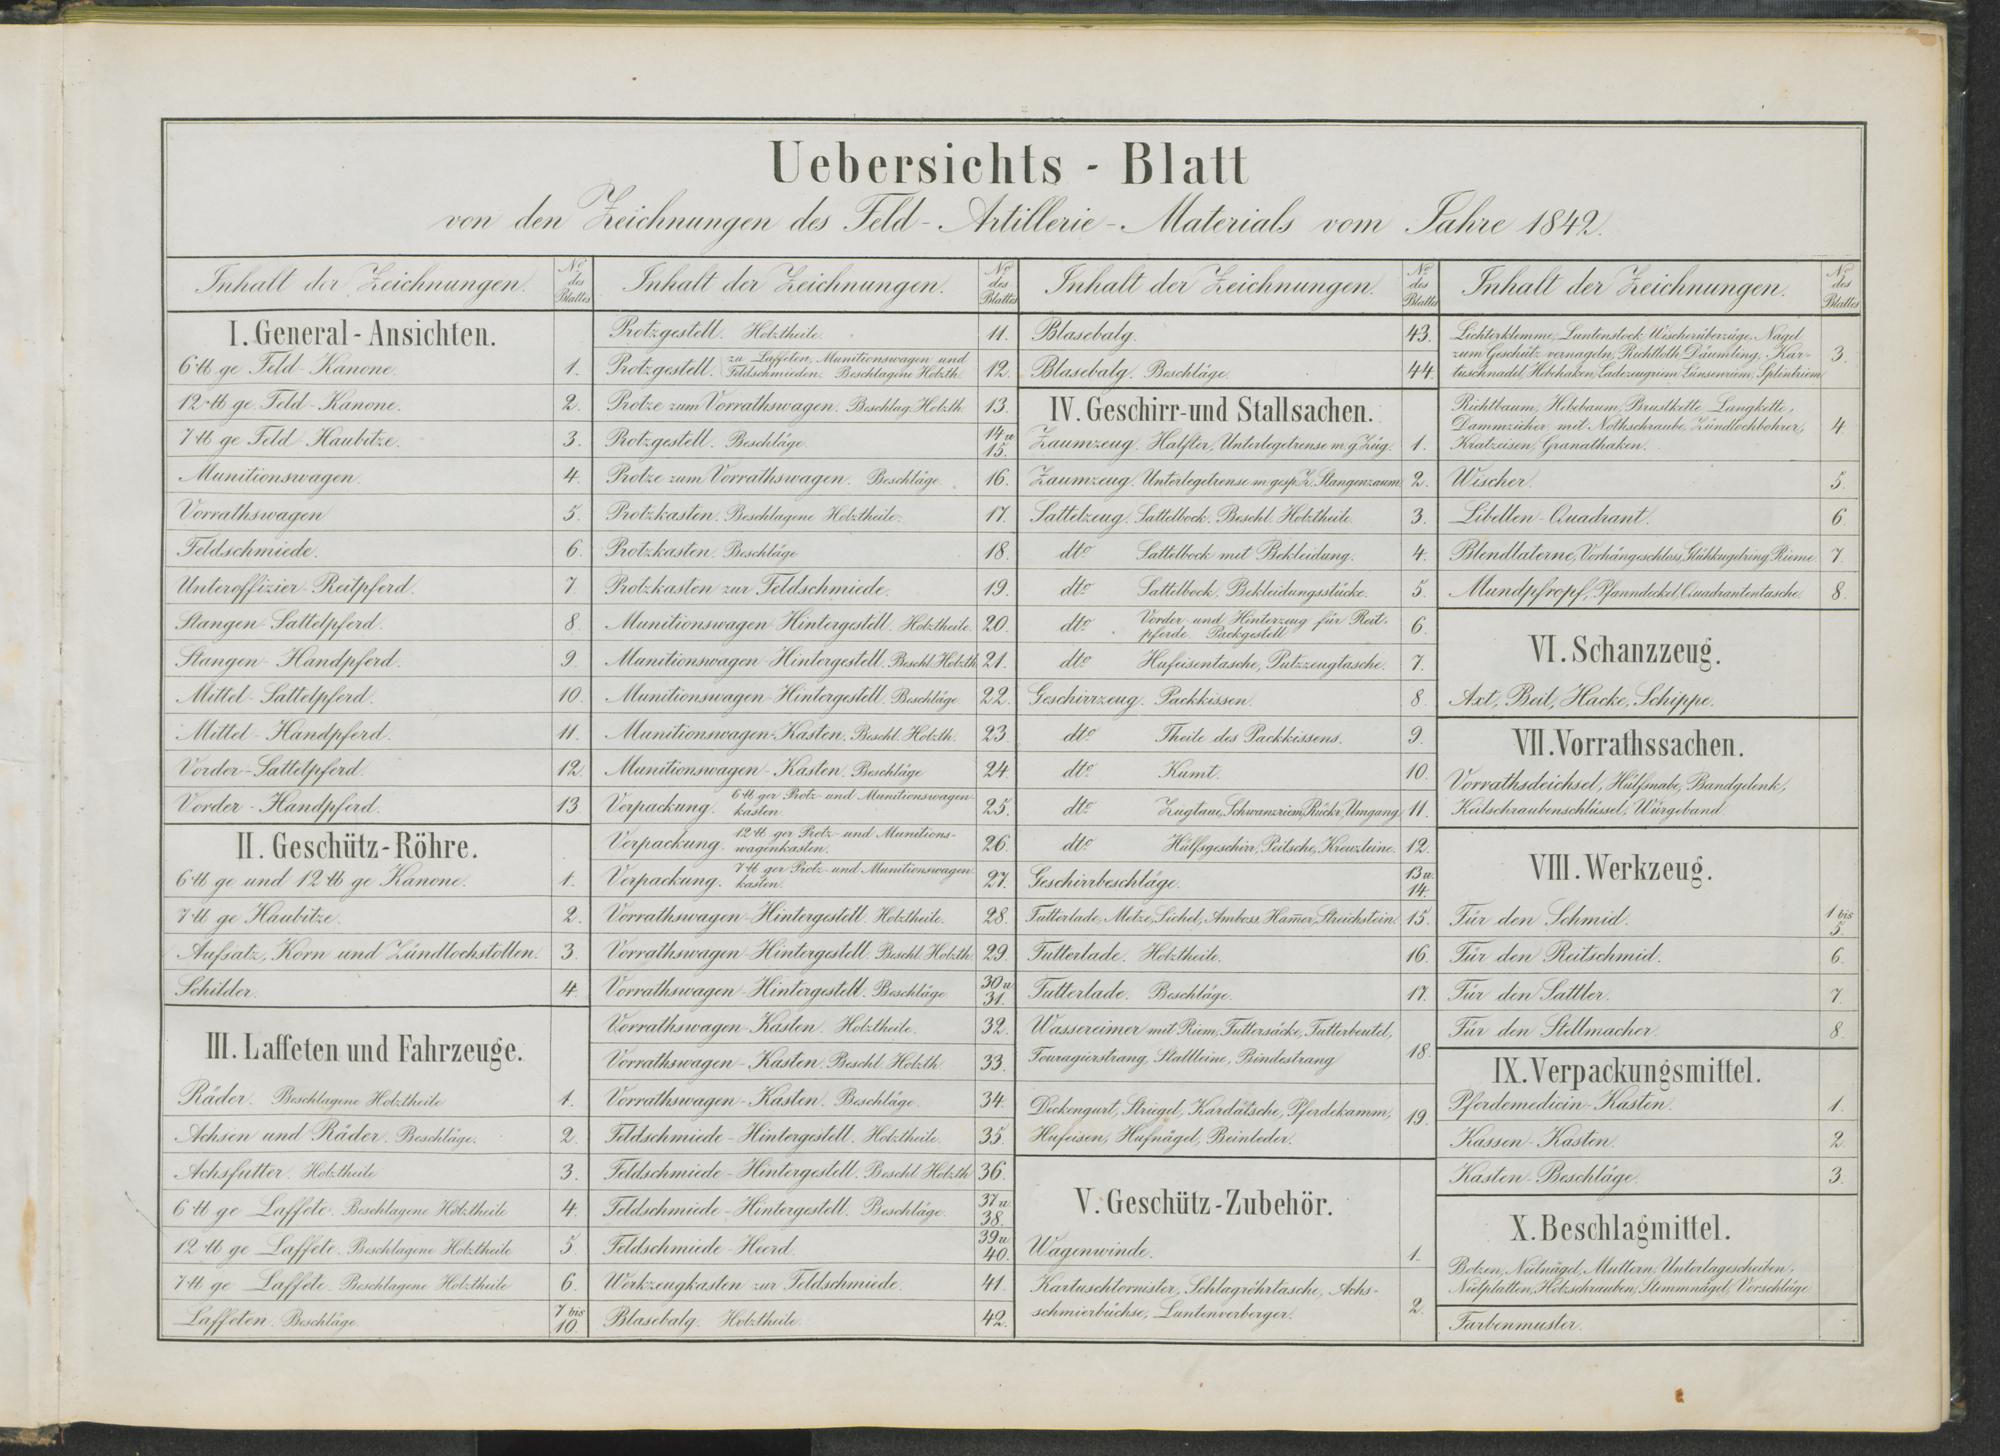 Uebersichts - Blatt
von den Zeichnungen des Feld-Artillerie-Materials vom Jahre 1842.
Inhalt der Zeichnungen. No des Blattes
I. General-Ansichten.
6 ℔ ge Feld-Kanone. 1.
12 ℔ ge Feld-Kanone. 2.
7 ℔ ge Feld Haubitze. 3.
Munitionswagen. 4.
Vorrathswagen 5.
Feldschmiede. 6.
Unteroffizier-Reitpferd. 7.
Stangen-Sattelpferd. 8.
Stangen-Handpferd. 9.
Mittel-Sattelpferd. 10.
Mittel-Handpferd. 11.
Vorder-Sattelpferd. 12.
Vorder-Handpferd. 13
II. Geschütz-Röhre.
6 ℔ ge und 12 ℔ ge Kanone. 1.
7 ℔ ge Haubitze. 2.
Aufsatz, Korn und Zündlochstollen. 3.
Schilder. 4.
III. Laffeten und Fahrzeuge.
Räder. Beschlagene Holztheile 1.
Achsen und Räder. Beschläge. 2.
Achsfutter. Holztheile 3.
6 ℔ ge Laffete. Beschlagene Holztheile 4.
12 ℔ ge Laffete. Beschlagene Holztheile 5.
7 ℔ ge Laffete. Beschlagene Holztheile 6.
Laffeten. Beschläge. 7 bis 10.
Inhalt der Zeichnungen. No des Blattes
Protzgestell. Holztheile. 11.
Protzgestell. zu Laffeten, Munitionswagen und
Feldschmieden. Beschlagene Holzth. 12.
Protze zum Vorrathswagen. Beschlag. Holzth. 13.
Protzgestell. Beschläge. 14 u. 15.
Protze zum Vorrathswagen. Beschläge. 16.
Protzkasten. Beschlagene Holztheile. 17.
Protzkasten. Beschläge 18.
Protzkasten zur Feldschmiede. 19.
Munitionswagen-Hintergestell. Holztheile. 20.
Munitionswagen-Hintergestell. Beschl. Holzth. 21.
Munitionswagen-Hintergestell. Beschläge. 22.
Munitionswagen-Kasten. Beschl. Holzth. 23.
Munitionswagen-Kasten. Beschläge 24.
Verpackung. 6 ℔ ger Protz- und Munitionswagen-
kasten. 25.
Verpackung. 12 ℔ ger Protz- und Munitions-
wagenkasten. 26.
Verpackung. 7 ℔ ger Protz- und Munitionswagen-
kasten. 27.
Vorrathswagen-Hintergestell. Holztheile. 28.
Vorrathswagen-Hintergestell. Beschl. Holzth. 29.
Vorrathswagen-Hintergestell. Beschläge. 30 u. 31.
Vorrathswagen-Kasten. Holztheile. 32.
Vorrathswagen-Kasten. Beschl. Holzth. 33.
Vorrathswagen-Kasten. Beschläge. 34.
Feldschmiede-Hintergestell. Holztheile. 35.
Feldschmiede-Hintergestell. Beschl. Holzth. 36.
Feldschmiede-Hintergestell. Beschläge. 37 u. 38.
Feldschmiede-Heerd. 39 u. 40.
Werkzeugkasten zur Feldschmiede. 41.
Blasebalg. Holztheile. 42.
Inhalt der Zeichnungen. No des Blattes
Blasebalg. 43.
Blasebalg. Beschläge. 44.
IV. Geschirr-und Stallsachen.
Zaumzeug. Halfter, Unterlegetrense m. g. Züg. 1.
Zaumzeug. Unterlegetrense m. gesp. Z. Stangenzaum 2.
Sattelzeug. Sattelbock. Beschl. Holztheile. 3.
dto Sattelbock mit Bekleidung. 4.
dto Sattelbock. Bekleidungsstücke. 5.
dto Vorder- und Hinterzeug für Reit-
pferde. Packgestell 6.
dto Hufeisentasche, Putzzeugtasche. 7.
Geschirrzeug. Packkissen. 8.
dto Theile des Packkissens. 9.
dto Kumt. 10.
dto Zugtaue, Schwanzriem, Rückr., Umgang. 11.
dto Hülfsgeschirr, Peitsche, Kreuzleine. 12.
Geschirrbeschläge. 13 u. 14.
Futterlade, Metze, Sichel, Amboss, Ham̄er, Streichstein. 15.
Futterlade. Holztheile. 16.
Futterlade. Beschläge. 17.
Wassereimer mit Riem, Futtersäcke, Futterbeutel,
Fouragierstrang, Stallleine, Bindestrang 18.
Deckengurt, Striegel, Kardätsche, Pferdekamm,
Hufeisen, Hufnägel, Beinleder. 19.
V. Geschütz-Zubehör.
Wagenwinde. 1.
Kartuschtornister, Schlagröhrtasche, Achs-
schmierbüchse, Luntenverberger. 2.
Inhalt der Zeichnungen. No des Blattes
Lichterklemme, Luntenstock, Wischerüberzüge, Nagel
zum Geschütz vernageln, Richtloth, Däumling, Kar-
tuschnadel, Hebehaken, Ladezeugriem, Lünsenriem, Splintriem 3.
Richtbaum, Hebebaum, Brustkette, Langkette,
Dammzieher mit Nothschraube, Zündlochbohrer,
Kratzeisen, Granathaken. 4.
Wischer. 5.
Libellen-Quadrant. 6.
Blendlaterne, Vorhängeschloss, Glühkugelring, Rieme. 7.
Mundpfropf, Pfanndeckel, Quadrantentasche. 8.
VI. Schanzzeug.
Axt, Beil, Hacke, Schippe.
VII. Vorrathssachen.
Vorrathsdeichsel, Hülfsnabe, Bandgelenk,
Keilschraubenschlüssel, Würgeband.
VIII. Werkzeug.
Für den Schmid. 1 bis 5.
Für den Reitschmid. 6.
Für den Sattler. 7.
Für den Stellmacher. 8.
IX. Verpackungsmittel.
Pferdemedicin-Kasten. 1.
Kassen-Kasten. 2.
Kasten-Beschläge. 3.
X. Beschlagmittel.
Bolzen, Nietnägel, Muttern, Unterlagescheiben,
Nietplatten, Holzschrauben, Stemmnägel, Vorschläge.
Farbenmuster.